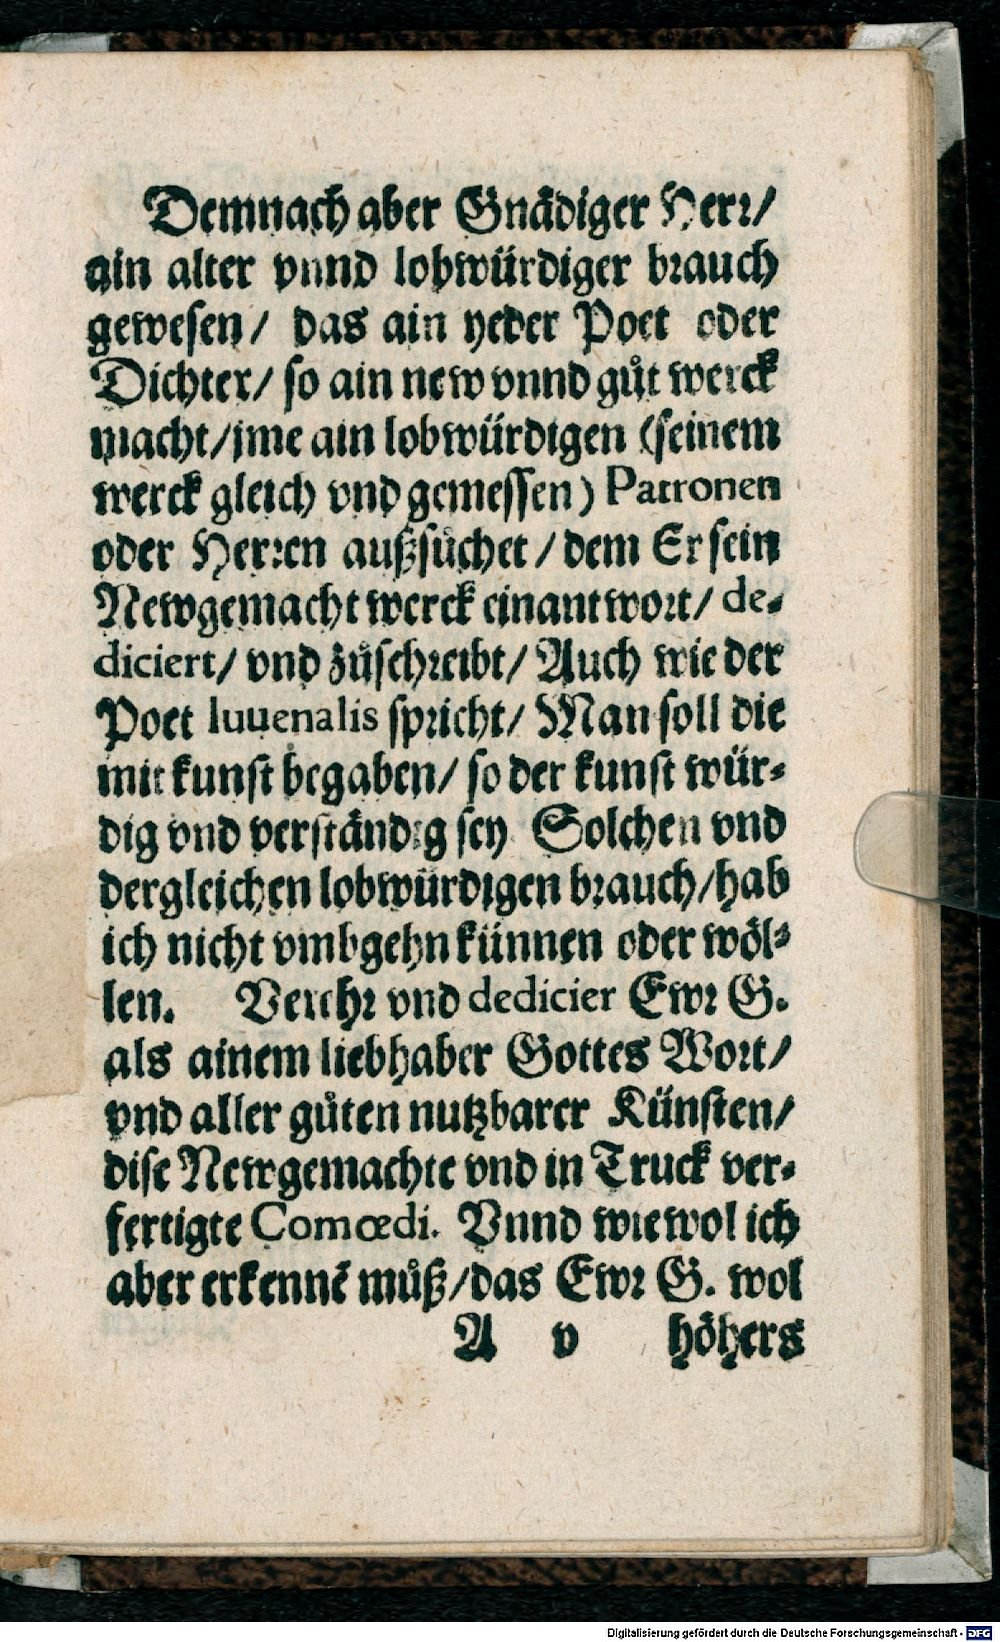 Demnach aber Gnädiger Herr/
ain alter vnnd lobwürdiger brauch
gewesen/ das ain yeder Poet oder
Dichter/ so ain new vnnd gůt werck
macht/ jme ain lobwürdigen (seinem
werck gleich vnd gemessen) Patronen
oder Herren außsůchet/ dem Er sein
Newgemacht werck einantwort/ de-
diciert/ vnd zůschreibt/ Auch wie der
Poet Iuuenalis spricht/ Man soll die
mit kunst begaben/ so der kunst wür-
dig vnd verständig sey Solchen vnd
dergleichen lobwürdigen brauch/ hab
ich nicht vmbgehn künnen oder wöl-
len. Verehr vnd dedicier Ewr G.
als ainem liebhaber Gottes Wort/
vnd aller gůten nutzbarer Künsten/
dise Newgemachte vnd in Truck ver-
fertigte Comœdi. Vnnd wiewol ich
aber erkennẽ můß/ das Ewr G. wol
A v höhers
Digitalisierung gefördert durch die Deutsche Forschungsgemeinschaft - DFG